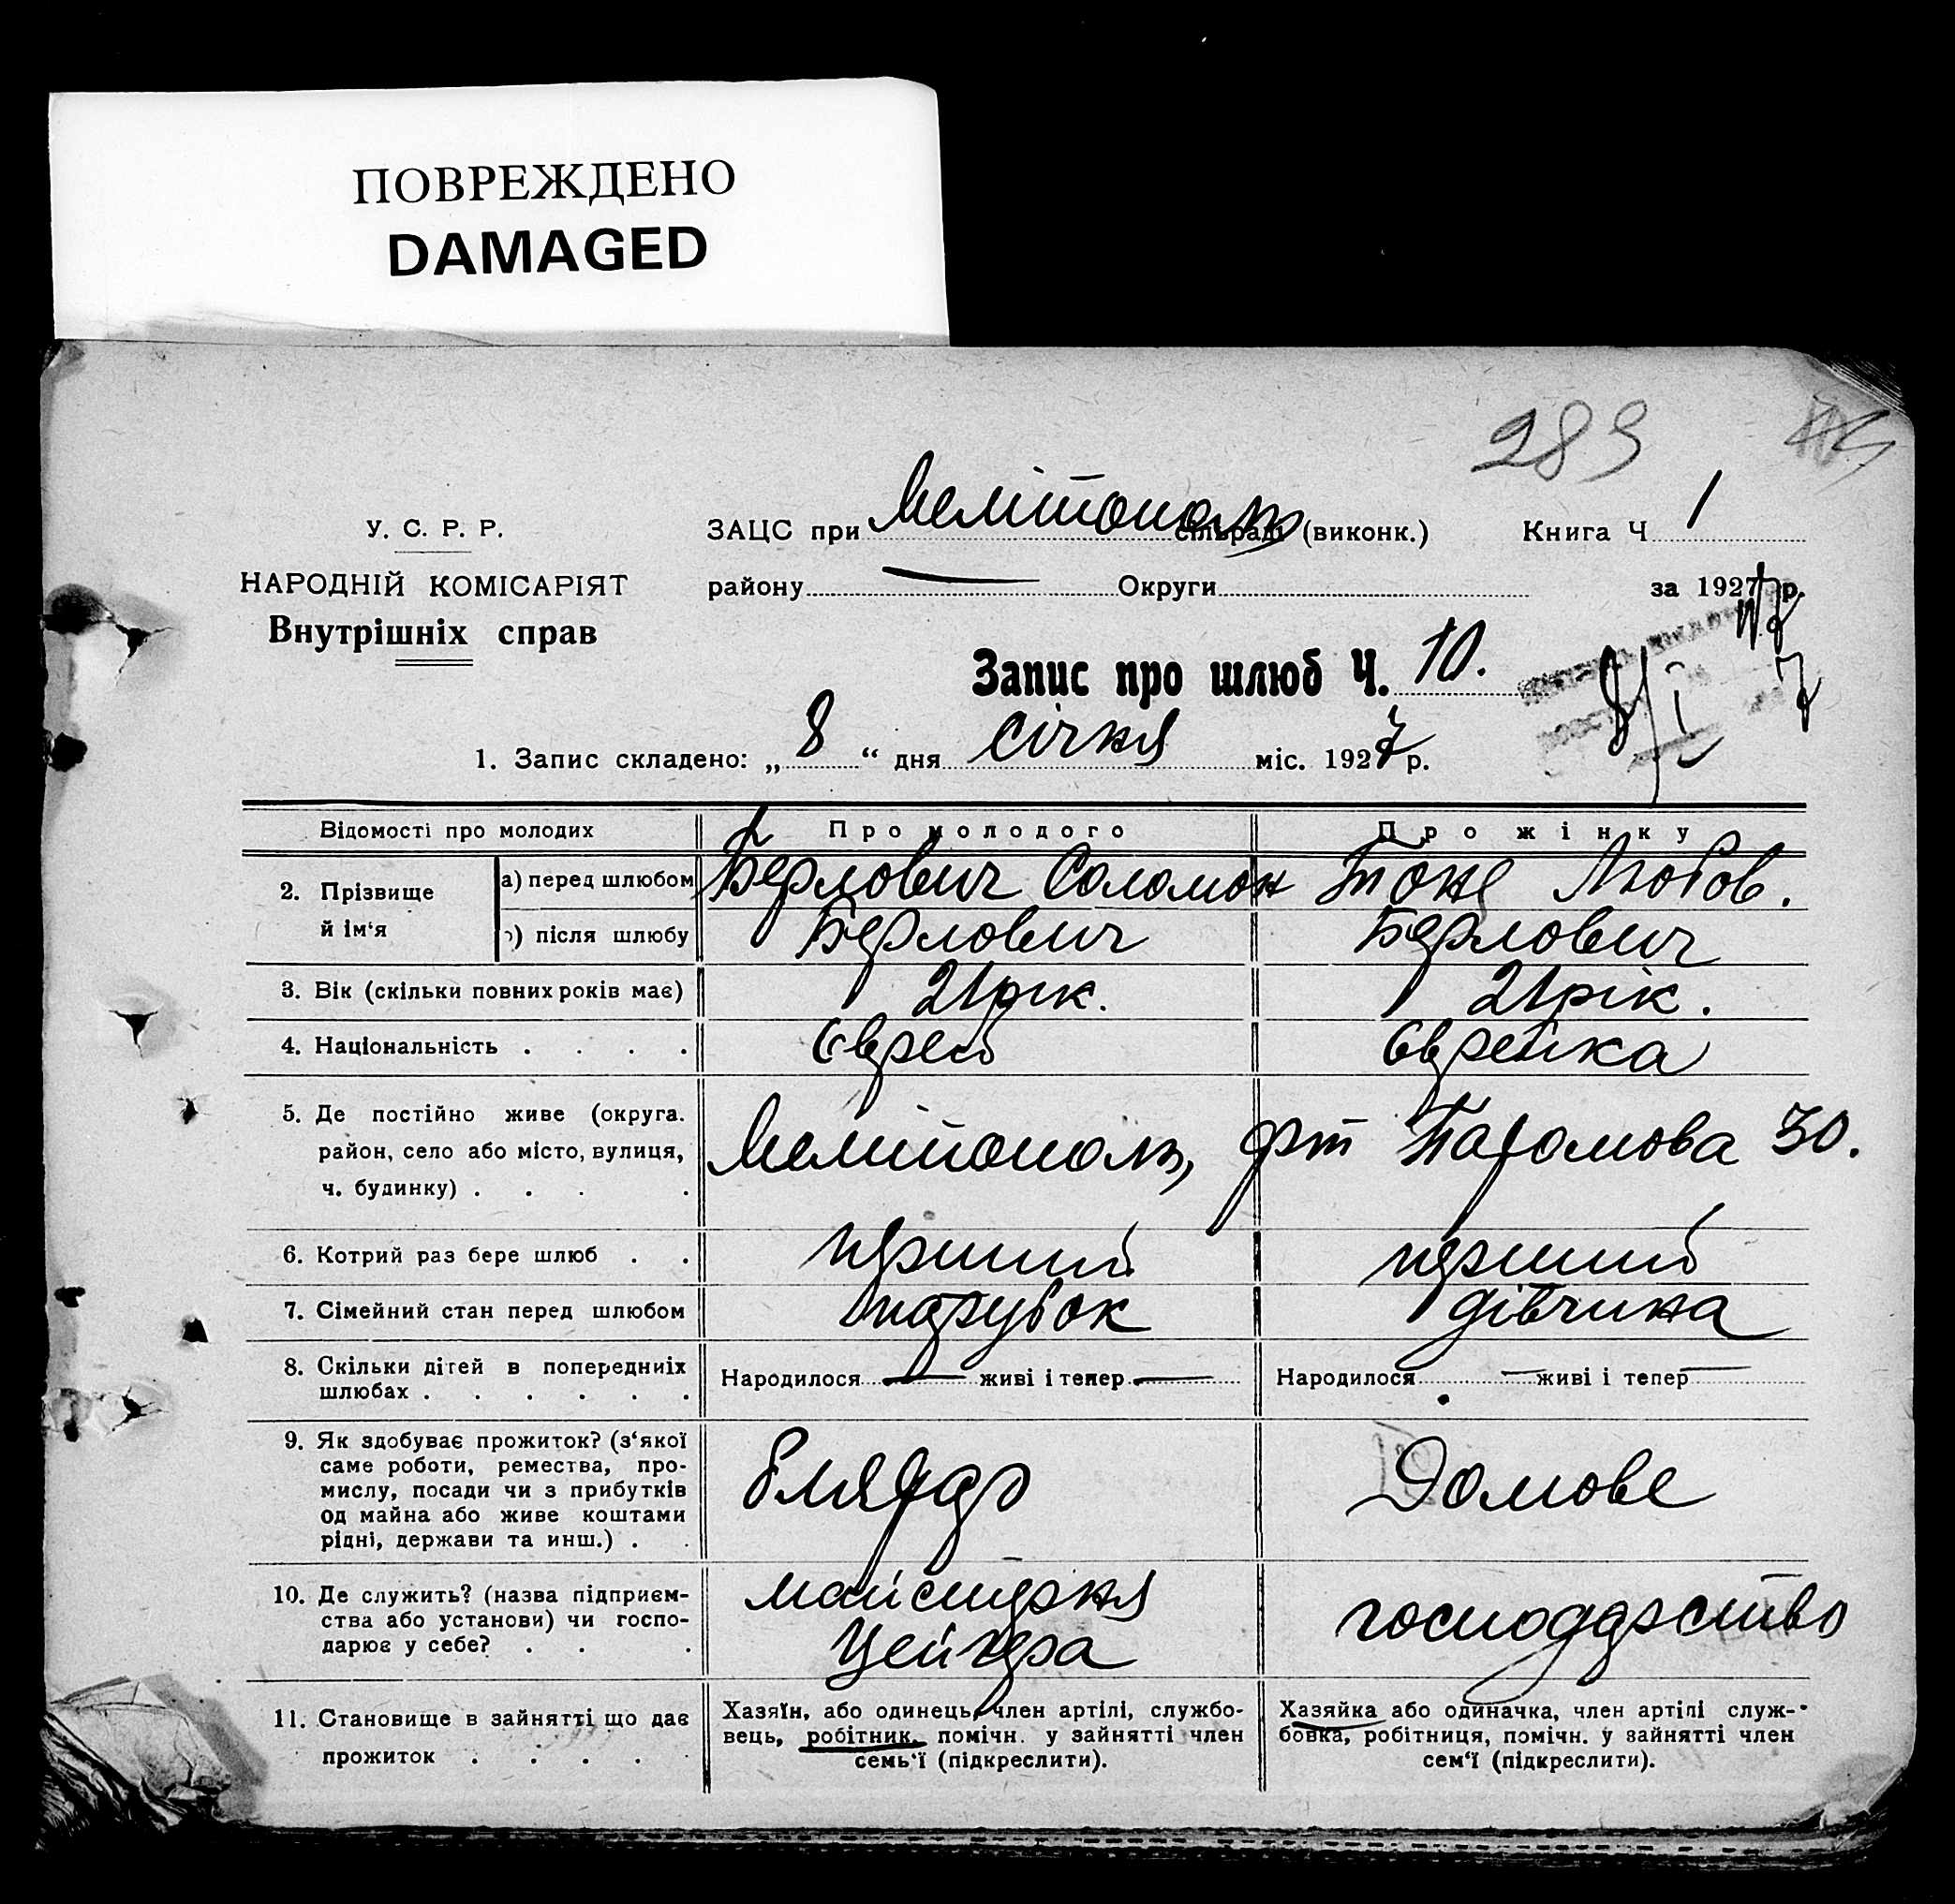 ПОВРЕЖДЕНО
DAMAGED
289
У. С. Р. Р.
НАРОДНІЙ КОМІСАРІЯТ
Внутрішніх справ
ЗАЦС при Мелітополь сільраді (виконк.) Книга Ч 1
району — Округи за 1927 р.
Запис про шлюб Ч. 10.
8/I 7
1. Запис складено: „ 8 “ дня січня міс. 1927 р.
Відомості про молодих Про молодого Про жінку
2. Прізвище й ім‘я
а) перед шлюбом Берлович Соломон Любов.
) після шлюбу Берлович Берлович
3. Вік (скільки повних років має) 21 рік. 21 рік.
4. Національність . . . . Єврей Єврейка
5. Де постійно живе (округа.
район, село або місто, вулиця, Мелітополь, 30.
ч. будинку) . . . .
6. Котрий раз бере шлюб . . перший перший
7. Сімейний стан перед шлюбом парубок дівчина
8. Скільки дітей в попередниіх
шлюбах . . . . . . Народилося — живі і тепер — Народилося — живі і тепер —
9. Як здобуває прожиток? (з‘якої
саме роботи, ремества, про-
мислу, посади чи з прибутків
од майна або живе коштами
рідні, держави та инш.) . . Бляхар Домове
10. Де служить? (назва підприєм-
ства або установи) чи госпо-
дарює у себе? . . . майстерня господарство
11. Становище в зайнятті що дає
прожиток . . . . .
Хазяїн, або одинець, член артілі, службо-
вець, робітник, помічн. у зайнятті член
семь‘ї (підкреслити).
Хазяйка або одиначка, член артілі служ-
бовка, робітниця, помічн. у зайнятті член
сем‘ї (підкреслити).